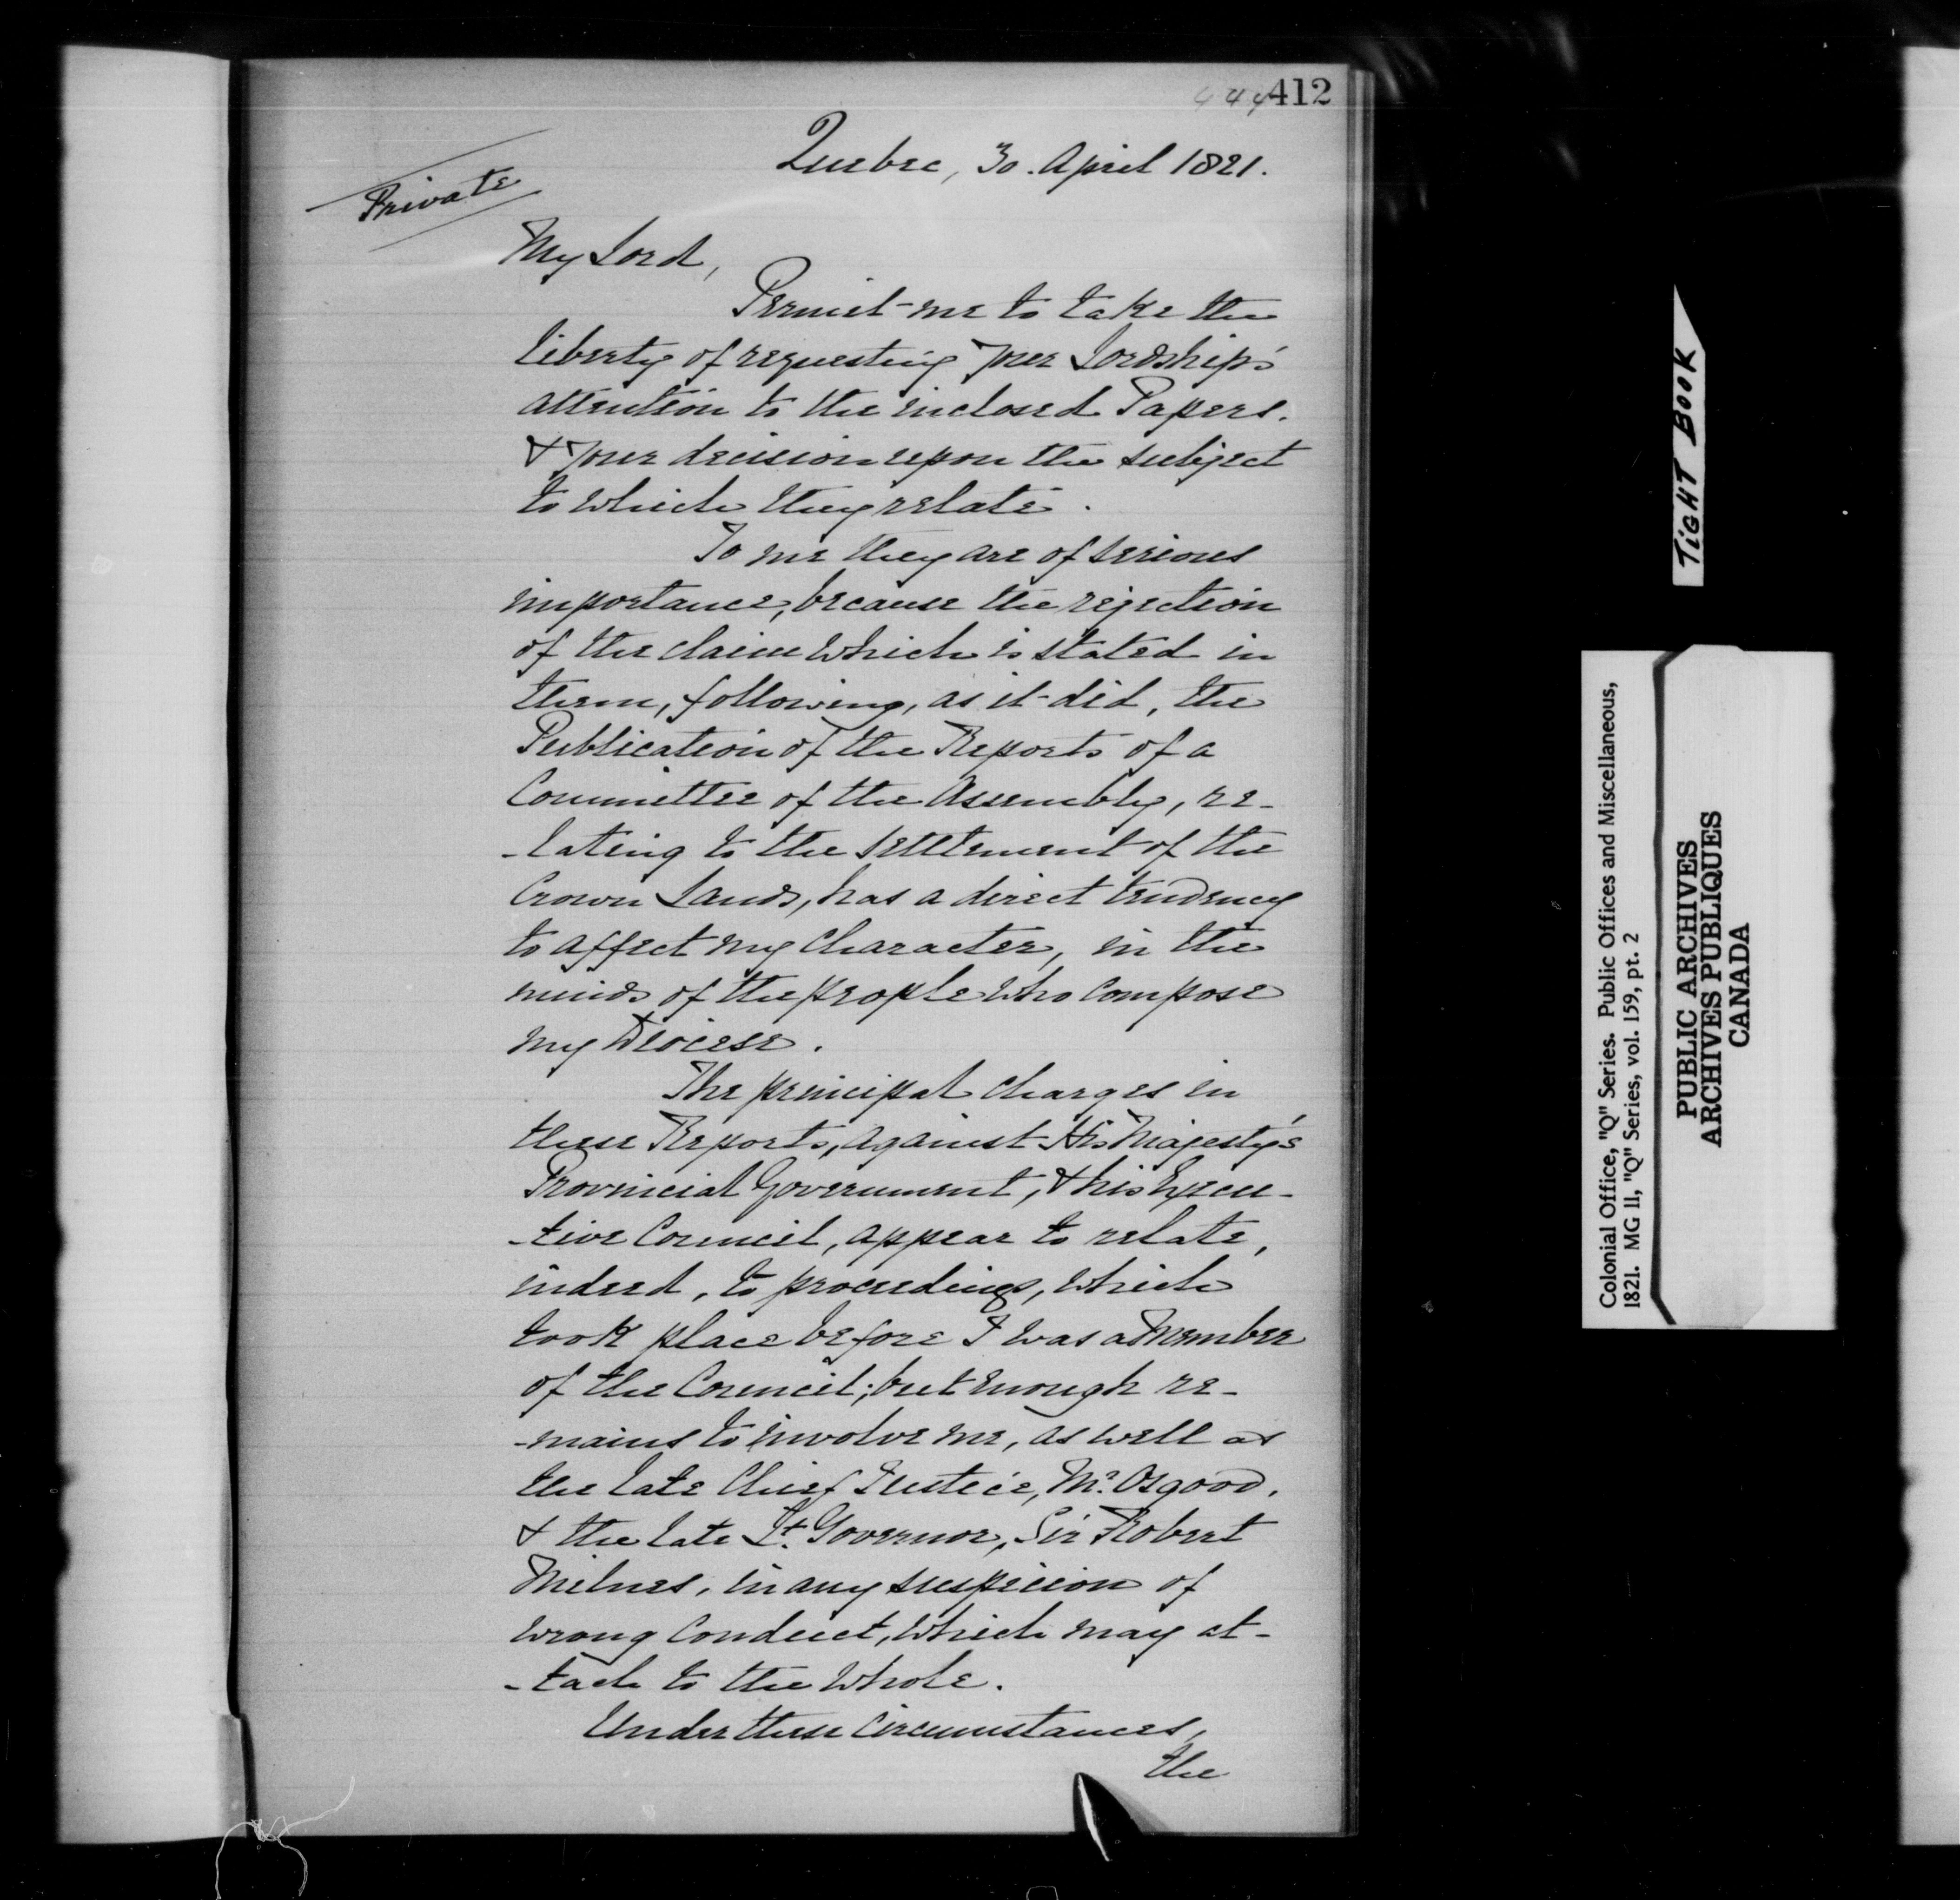 444 412
Quebec, 30. April 1821.
Private
My Lord,
Permit me to take the
liberty of requesting your Lordship's
attention to the inclosed Papers.
& your decision upon the subject
to which they relate.
To me they are of serious
importance, because the rejection
of the claim which is stated in
them, following, as it did, the
Publication of the Reports of a
Committee of the Assembly, re-
-lating to the settlement of the
Crown Lands, has a direct tendency
to affect my Character, in the
minds of the people who compose
my Diocese.
The principal charges in
these Reports, against His Majesty's
Provincial Government, & his Execu-
-tive Council, appear to relate,
indeed, to proceedings, which
took place before I was a Member
of the Council; but enough re-
-mains to involve me, as well as
the late Chief Justice, Mr. Osgood,
& the late Lt. Governor, Sir Robert
Milnes, in any suspicion of
wrong conduct, which may at-
-tach to the whole.
Under these Circumstances,
the
TIGHT BOOK
Colonial Office, "Q" Series. Public Offices and Miscellaneous,
1821. MG 11, "Q" Series, vol. 159, pt. 2
PUBLIC ARCHIVES
ARCHIVES PUBLIQUES
CANADA